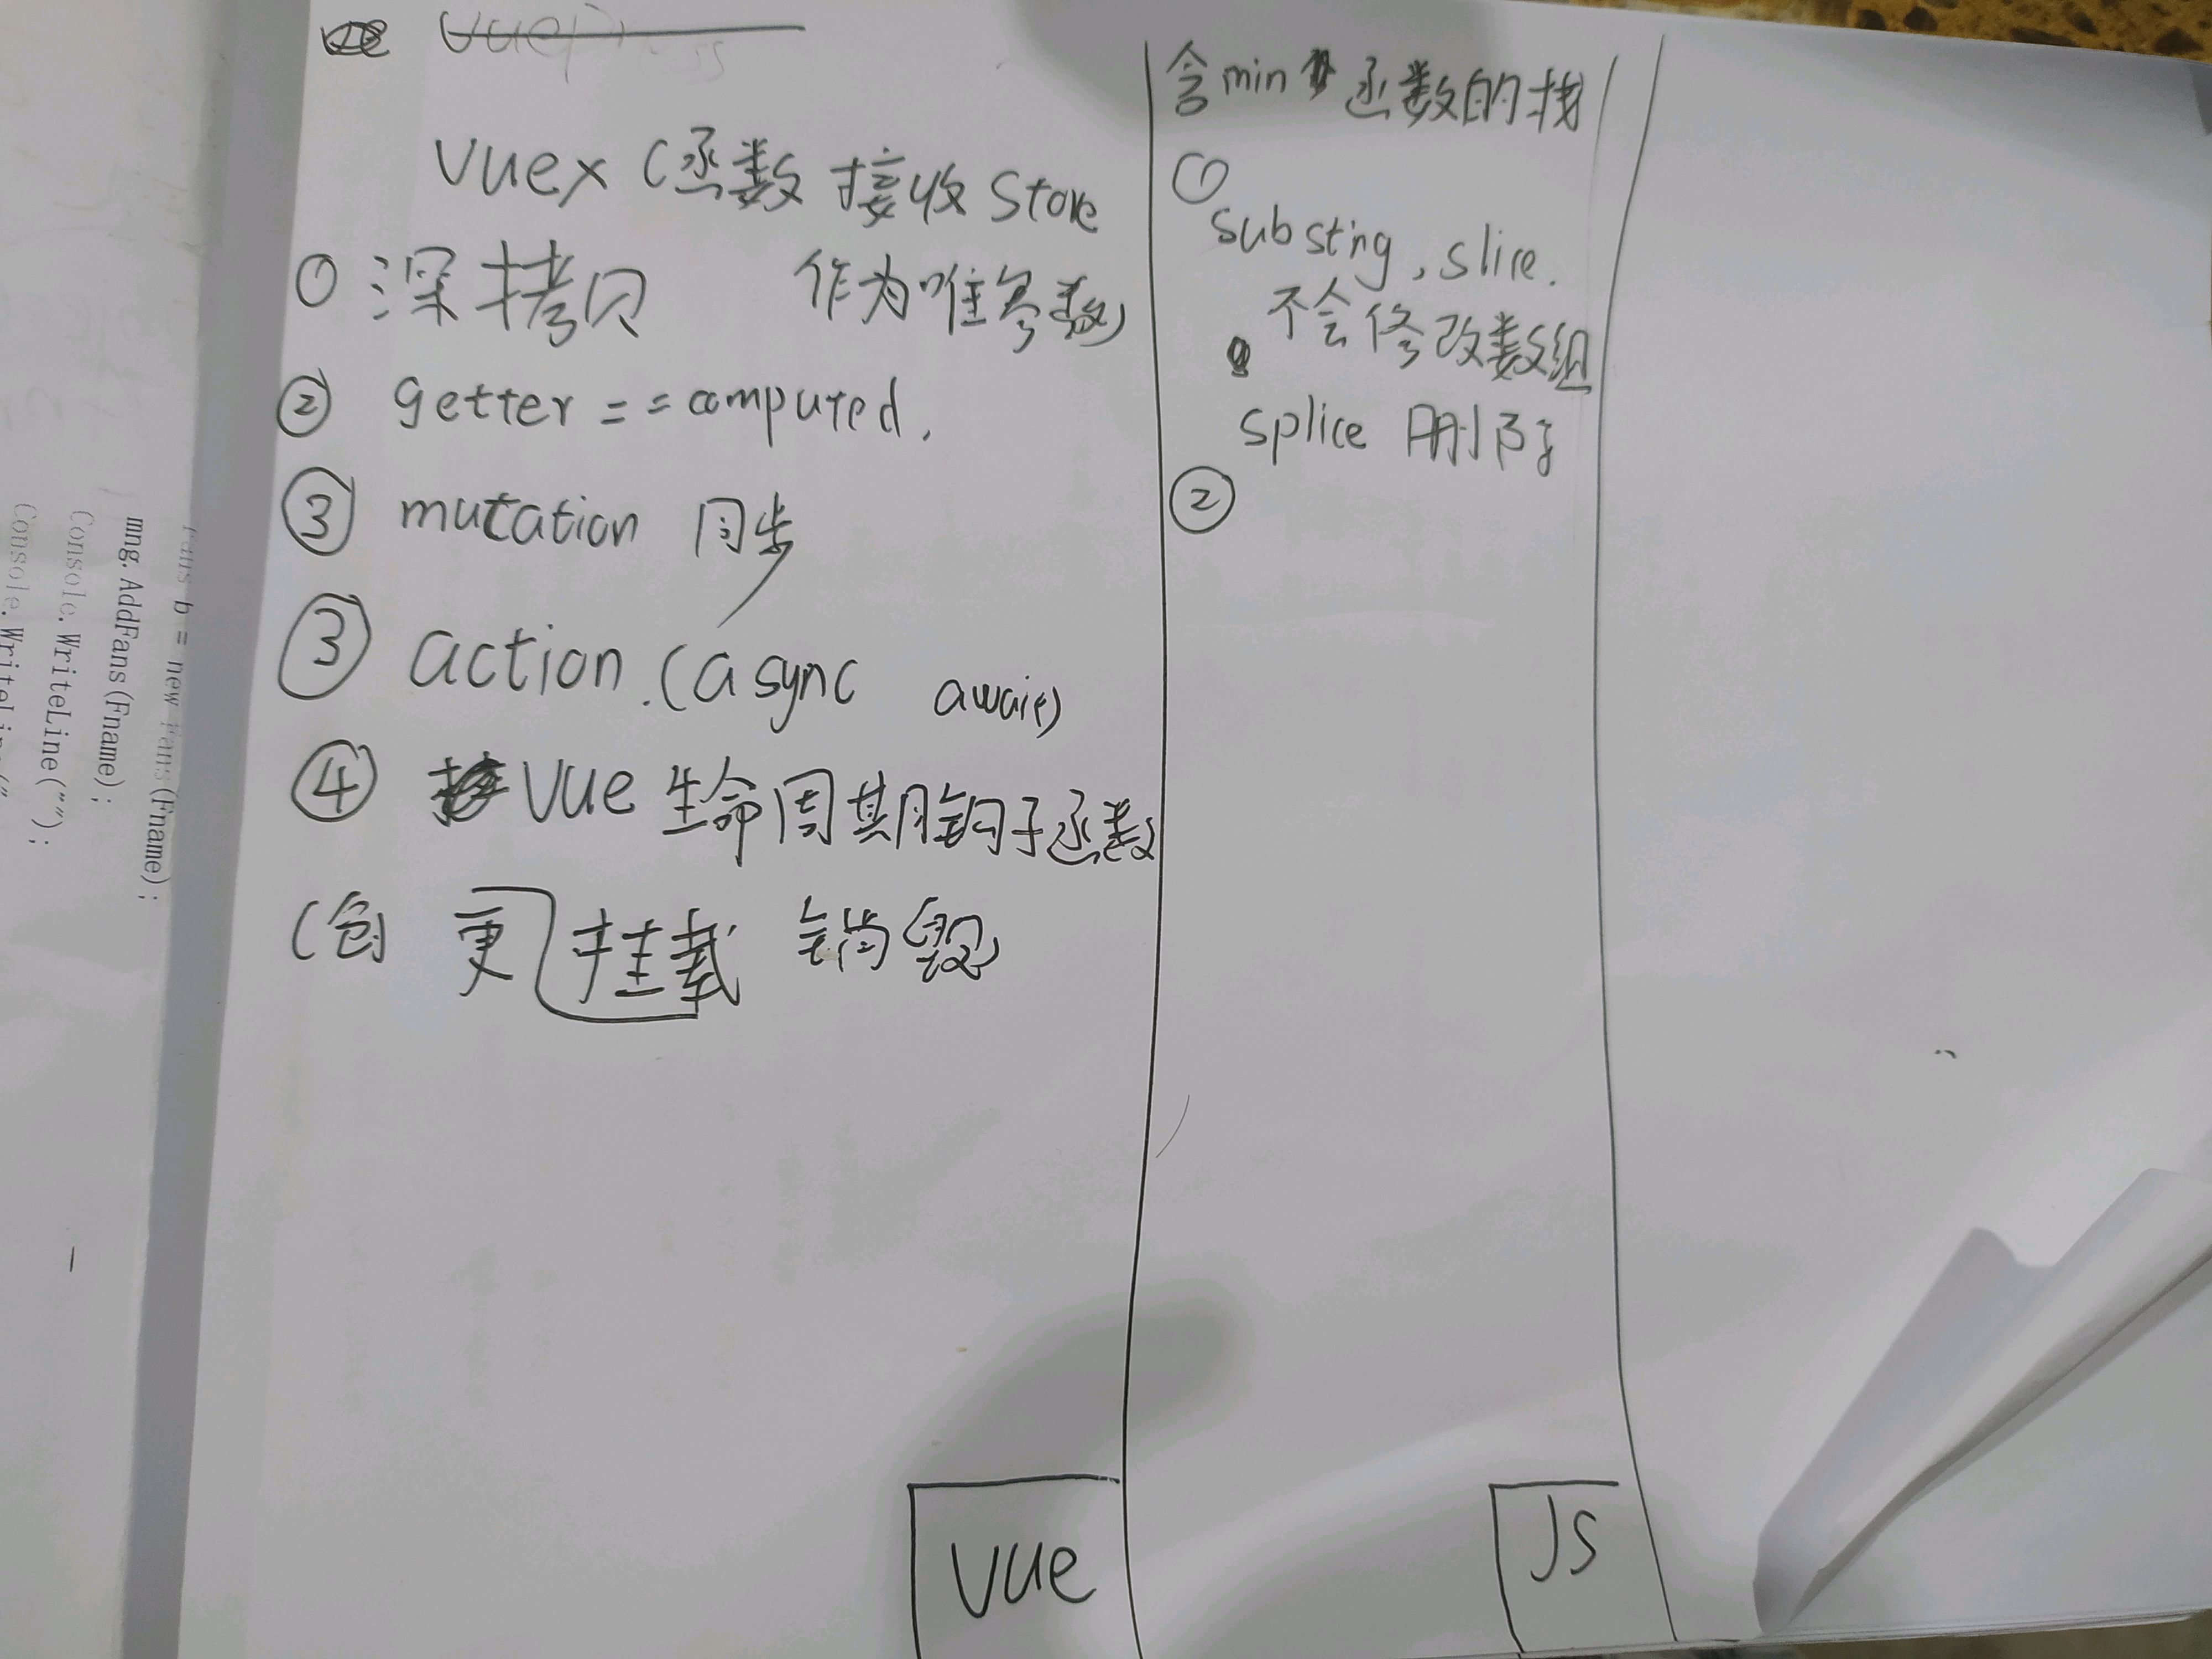 vuex (函数接收 Store
作为唯参数)
① 深拷贝
② getter == computed.
③ mutation 同步
③ action.(async await)
④ Vue 生命周期钩子函数
(创 更 挂载 销毁)
vue
含min 函数的栈
①
substring, slice.
不会修改数组
splice 删除
②
JS
b = new Fans(Fname);
mng.AddFans(Fname);
Console.WriteLine("");
Console.WriteLine("